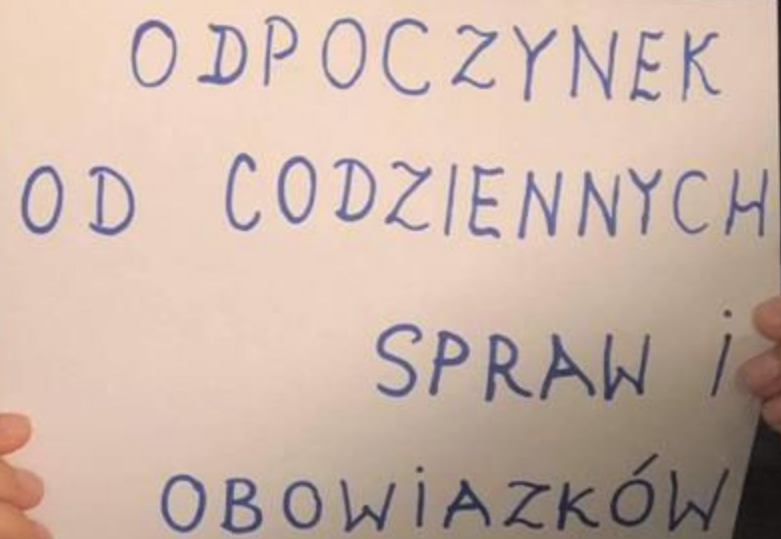 ODPOCZYNEK
OD CODZIENNYCH
SPRAW i
OBOWiAZKÓW